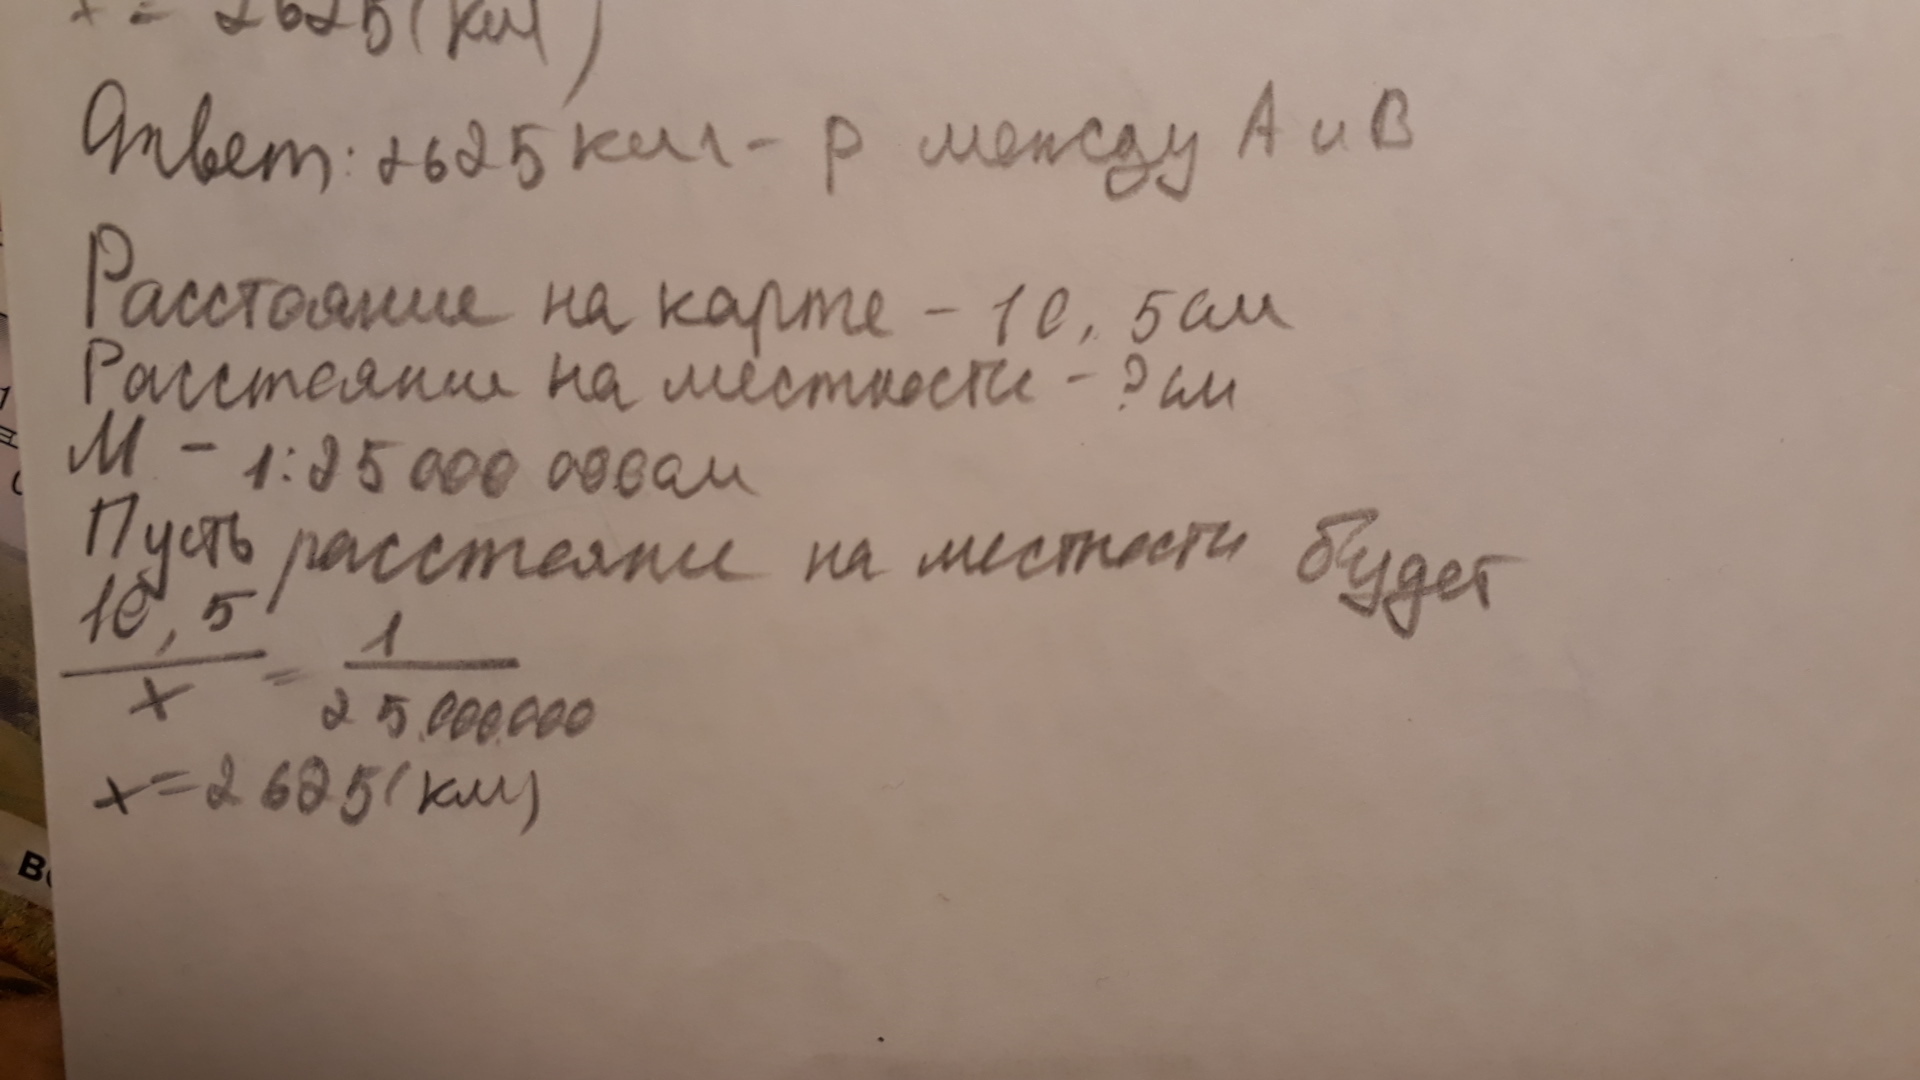 x = 2625(км)
Ответ: 2625 км - р между А и В
Расстояние на карте - 10,5 см
Расстояние на местности - ? см
М - 1:25 000 000 см
Пусть расстояние на местности будет
10,5 / x = 1 / 25.000.000
x = 2625(км)